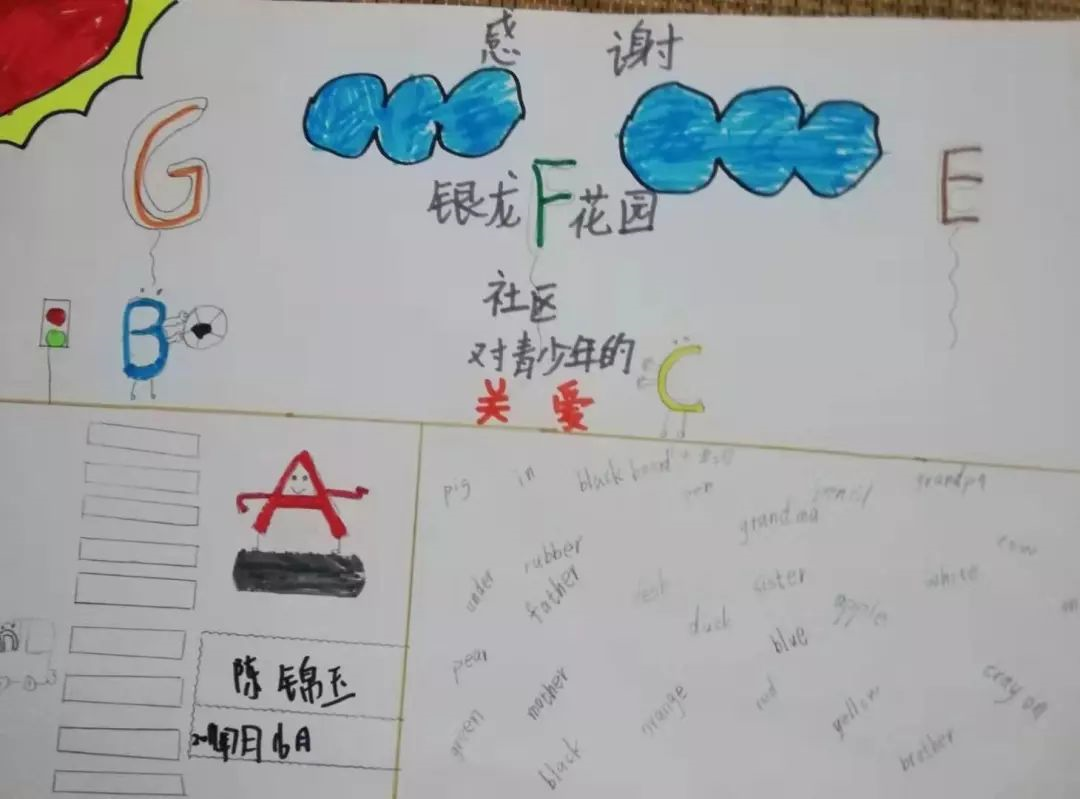 感 谢
G
E
银龙F花园
B
社区
对青少年的
C
关 爱
A
pig in blackboard pen pencil grandpa
grandma
cow
under rubber father desk sister white
duck apple
blue
pear mother orange red yellow crayon
green black brother
陈锦玉